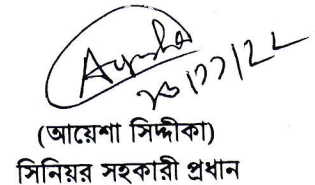 Ayesha
(আয়েশা সিদ্দীকা)
সিনিয়র সহকারী প্রধান